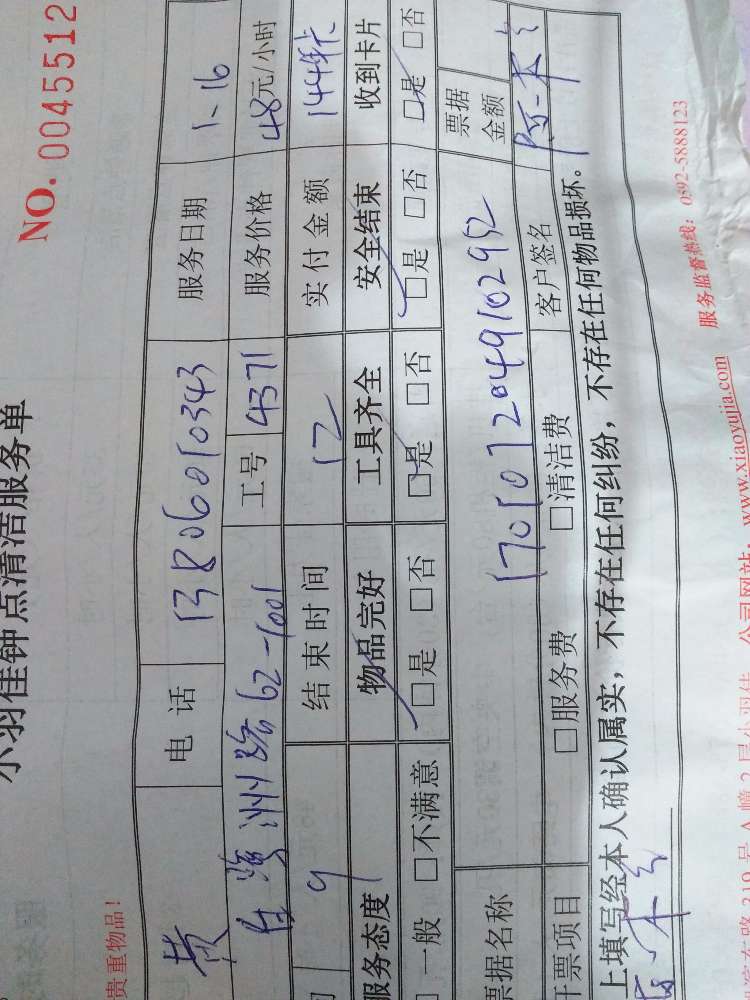 小羽佳钟点清洁服务单
NO. 0045512
贵重物品!
黄 电话 13806010343 服务日期 1.16
62-1001 工号 4371 服务价格 48元/小时
9 结束时间 12 实付金额 144
服务态度 物品完好 工具齐全 安全结束 收到卡片
一般 □不满意 □是 □否 □是 □否 □是 □否 □是 □否
票据名称 票据金额
1701072049102952
开票项目 □服务费 □清洁费 客户签名
上填写经本人确认属实，不存在任何纠纷，不存在任何物品损坏。
公司网站：www.xiaoyujia.com 服务监督热线：0592-5888123